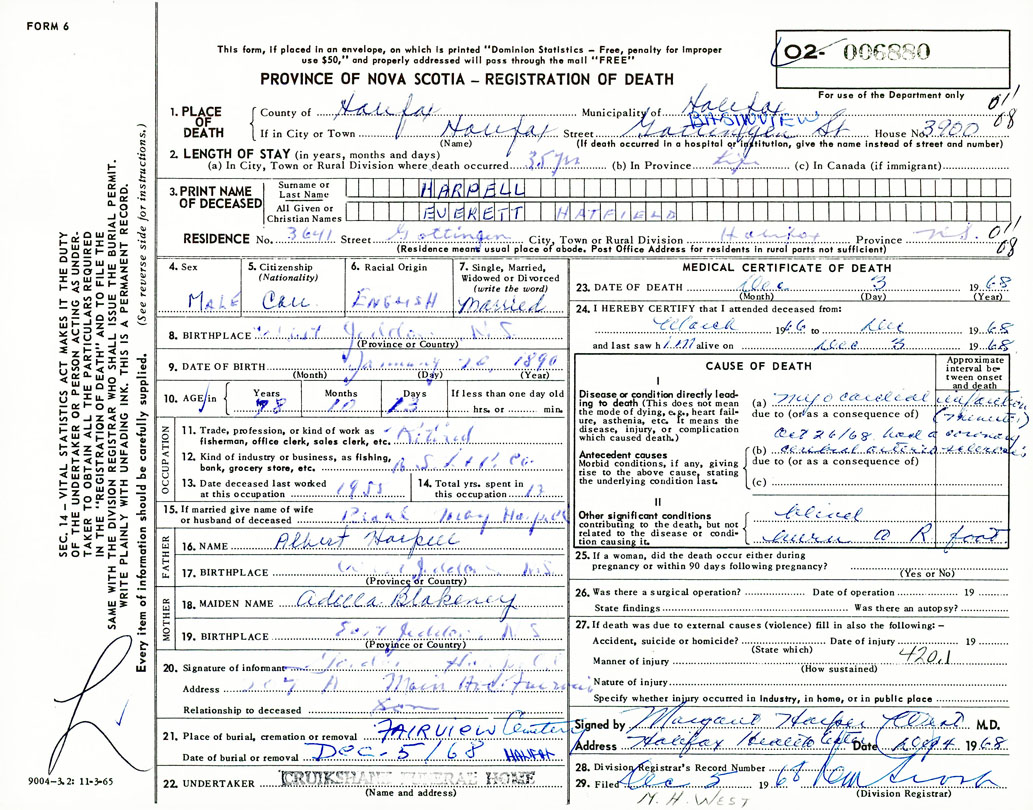 FORM 6
This form, if placed in an envelope, on which is printed "Dominion Statistics – Free, penalty for improper
use $50," and properly addressed will pass through the mail "FREE"
PROVINCE OF NOVA SCOTIA – REGISTRATION OF DEATH
O2- 006880
For use of the Department only
011
08
1. PLACE OF DEATH
County of Halifax Municipality of Halifax
BASINVIEW
If in City or Town Halifax Street Gottingen St House No. 3900
(Name) (If death occurred in a hospital or institution, give the name instead of street and number)
2. LENGTH OF STAY (in years, months and days)
(a) In City, Town or Rural Division where death occurred 35 yrs (b) In Province Life (c) In Canada (if immigrant)
3. PRINT NAME OF DECEASED
Surname or Last Name HARPELL
All Given or Christian Names EVERETT HATFIELD
RESIDENCE No. 3641 Street Gottingen City, Town or Rural Division Halifax Province N.S. 011
08
(Residence means usual place of abode. Post Office Address for residents in rural parts not sufficient)
4. Sex Male
5. Citizenship (Nationality) Can.
6. Racial Origin ENGLISH
7. Single, Married, Widowed or Divorced (write the word) Married
8. BIRTHPLACE Jeddore N.S.
(Province or Country)
9. DATE OF BIRTH January 20, 1890
(Month) (Day) (Year)
10. AGE in Years 78 Months 10 Days 13 If less than one day old
hrs. or min.
OCCUPATION
11. Trade, profession, or kind of work as fisherman, office clerk, sales clerk, etc. Retired
12. Kind of industry or business, as fishing, bank, grocery store, etc. N.S. L. & P. Co.
13. Date deceased last worked at this occupation 1955
14. Total yrs. spent in this occupation 13
15. If married give name of wife or husband of deceased Pearl May Harpell
FATHER
16. NAME Albert Harpell
17. BIRTHPLACE Jeddore N.S.
(Province or Country)
MOTHER
18. MAIDEN NAME Adella Blakeney
19. BIRTHPLACE East Jeddore, N.S.
(Province or Country)
20. Signature of informant
Address Main Ave. Fairview
Relationship to deceased Son
21. Place of burial, cremation or removal FAIRVIEW Cemetery
Date of burial or removal DEC-5/68 HALIFAX
22. UNDERTAKER CRUIKSHANK FUNERAL HOME
(Name and address)
MEDICAL CERTIFICATE OF DEATH
23. DATE OF DEATH Dec 3 1968
(Month) (Day) (Year)
24. I HEREBY CERTIFY that I attended deceased from:
March 1966 to Dec 1968
and last saw him alive on Dec 3 1968
CAUSE OF DEATH
Approximate interval between onset and death
I
Disease or condition directly leading to death (This does not mean the mode of dying, e.g., heart failure, asthenia, etc. It means the disease, injury, or complication which caused death.)
(a) myocardial infarction
due to (or as a consequence of) (minutes)
Oct 26/68 had a coronary
Antecedent causes
Morbid conditions, if any, giving rise to the above cause, stating the underlying condition last.
(b) cerebral arteriosclerosis
due to (or as a consequence of)
(c)
II
Other significant conditions contributing to the death, but not related to the disease or condition causing it.
blind
foot
25. If a woman, did the death occur either during pregnancy or within 90 days following pregnancy?
(Yes or No)
26. Was there a surgical operation? Date of operation 19
State findings Was there an autopsy?
27. If death was due to external causes (violence) fill in also the following: –
Accident, suicide or homicide? Date of injury 19
(State which)
Manner of injury 420.1
(How sustained)
Nature of injury
Specify whether injury occurred in industry, in home, or in public place
Signed by Margaret Harper West M.D.
Address Halifax Health Center Date Dec 4 1968
28. Division Registrar's Record Number
29. Filed Dec 5 1968
(Division Registrar)
M. H. WEST
SEC. 14 – VITAL STATISTICS ACT MAKES IT THE DUTY
OF THE UNDERTAKER OR PERSON ACTING AS UNDER-
TAKER TO OBTAIN ALL THE PARTICULARS REQUIRED
IN THE "REGISTRATION OF DEATH" AND TO FILE THE
SAME WITH THE DIVISION REGISTRAR WHO SHALL ISSUE THE BURIAL PERMIT.
WRITE PLAINLY WITH UNFADING INK. THIS IS A PERMANENT RECORD.
Every item of information should be carefully supplied. (See reverse side for instructions.)
9004-3.2: 11-3-65